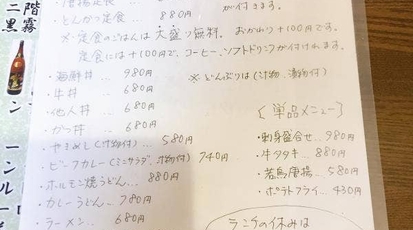 ・とんかつ定食 … 880円
が付きます。
※ 定食のごはんは大盛り無料。おかわり+100円です。
定食には+100円で、コーヒー、ソフトドリンクが付けれます。
・海鮮丼 … 980円
※ どんぶりは(汁物、漬物付)
・牛丼 … 680円
・他人丼 … 680円
・かつ丼 … 680円
・やきめし(汁物付) … 580円
・ビーフカレー(ミニサラダ、汁物付) 740円
・ホルモン焼うどん … 880円
・カレーうどん … 780円
・ラーメン … 680円
〈単品メニュー〉
・刺身盛合せ … 980円
・牛タタキ … 880円
・若鳥唐揚 … 580円
・ポテトフライ … 430円
ランチの休みは
階
霧
二
黒